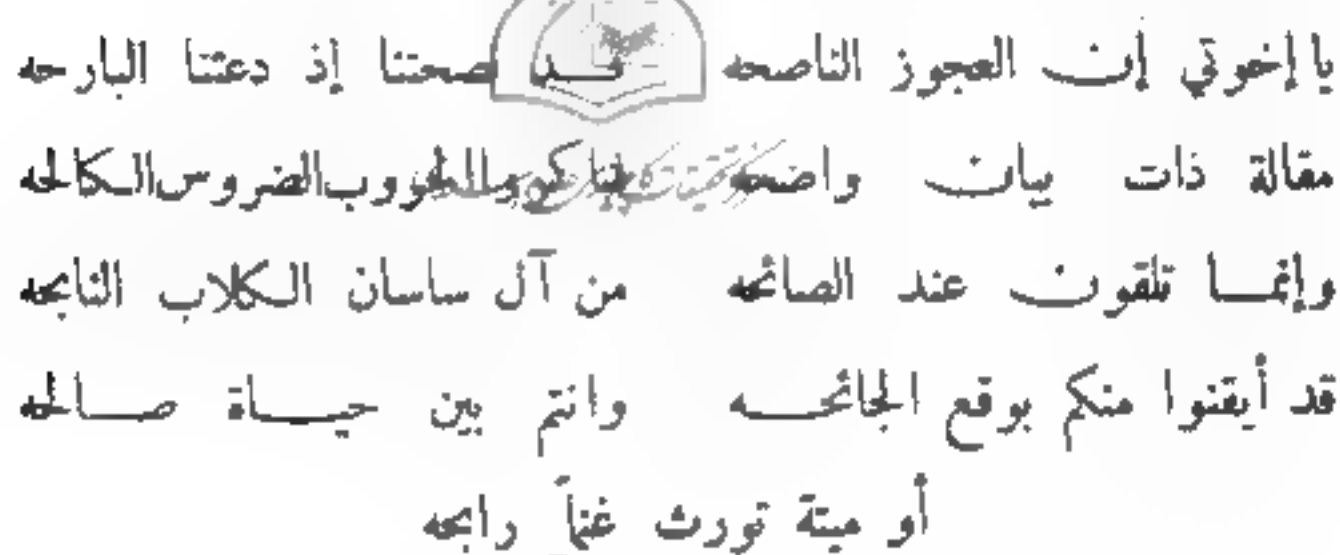 يا إخوتي إن العجوز الناصحه قد نصحتنا إذ دعتنا البارحه
مقالة ذات بيان واضحه فباكروا للحروب الضروس الكالحه
وإنما تلقون عند الصائحه من آل ساسان الكلاب النابحه
قد أيقنوا منكم بوقع الجائحه وانتم بين حياة صالحه
أو ميتة تورث غنماً رابحه